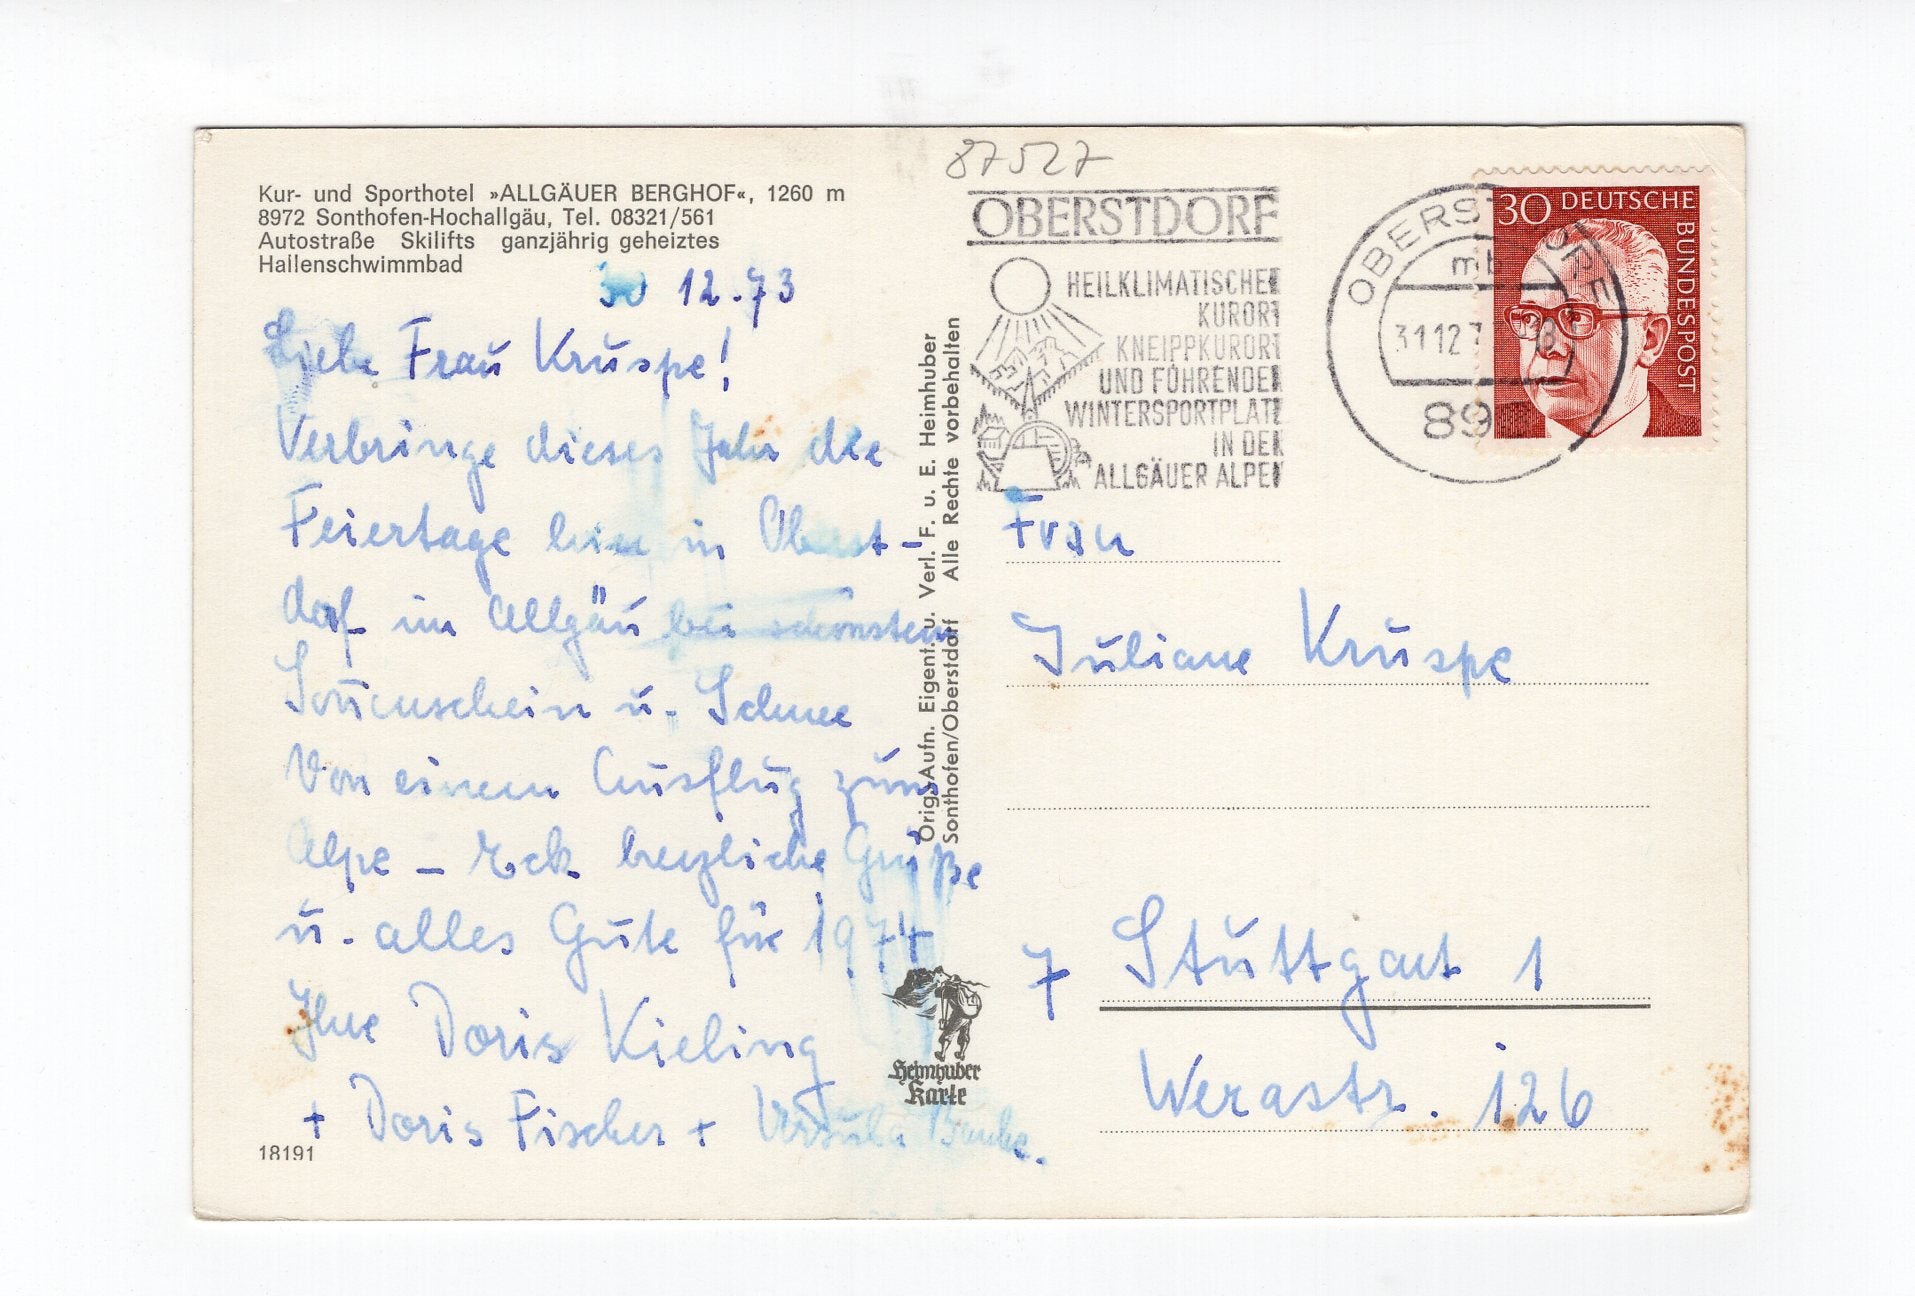 Kur- und Sporthotel »ALLGÄUER BERGHOF«, 1260 m
8972 Sonthofen-Hochallgäu, Tel. 08321/561
Autostraße Skilifts ganzjährig geheiztes
Hallenschwimmbad
30 12.73
Liebe Frau Kruspe!
Verbringe dieses Jahr die
Feiertage hier in Oberst-
dorf im Allgäu bei schönstem
Sonnenschein u. Schnee
Von einem Ausflug zum
Alpe - Eck herzliche Grüße
u. alles Gute für 1974
Ihre Doris Kieling
+ Doris Fischer + Ursula
18191
Orig. Aufn. Eigent. u. Verl. F. u. E. Heimhuber
Sonthofen/Oberstdorf Alle Rechte vorbehalten
Heimhuber
Karte
87527
OBERSTDORF
HEILKLIMATISCHER
KURORT
KNEIPPKURORT
UND FÜHRENDER
WINTERSPORTPLATZ
IN DEN
ALLGÄUER ALPEN
OBERSTDORF
mb
31.12.7
89
30 DEUTSCHE
BUNDESPOST
Frau
Juliane Kruspe
7 Stuttgart 1
Werastr. 126